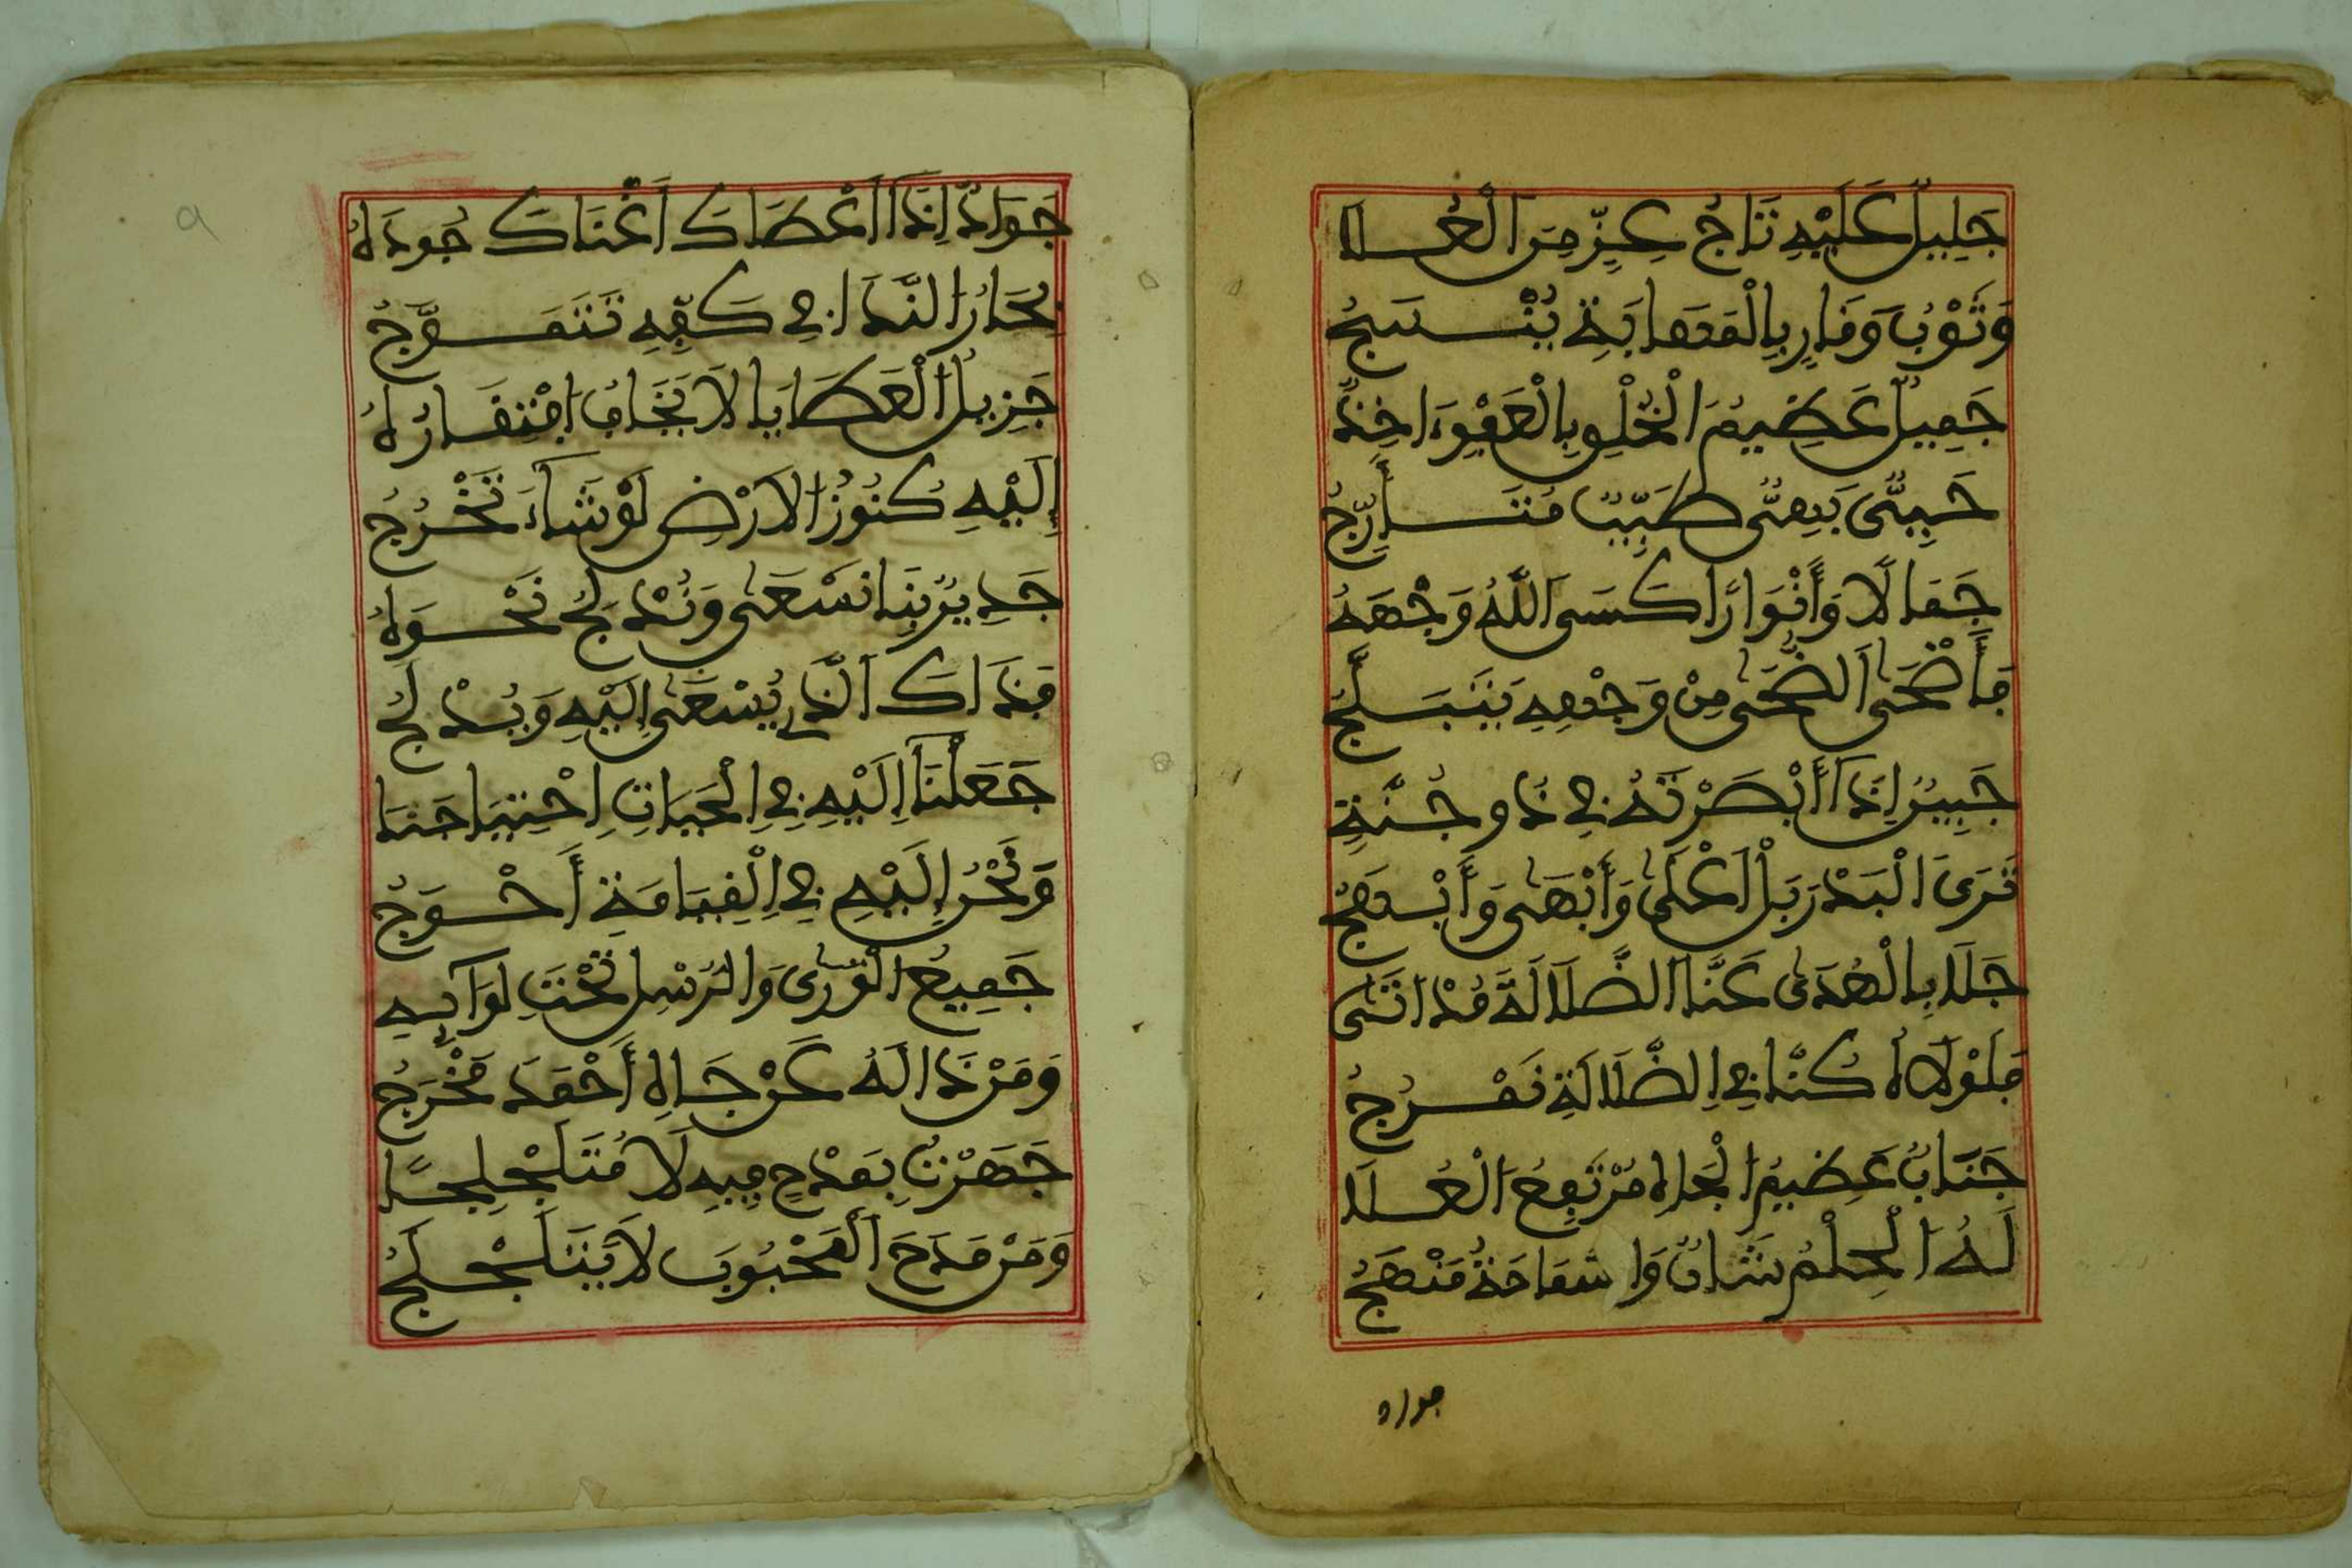 جَلِيلٌ عَلَيْهِ تَاجُ عِزٍّ مِنَ الْعُلَا
وَثَوْبُ وَقَارٍ بِالْمَهَابَةِ يُنْسَجُ
جَمِيلٌ عَظِيمُ الْخُلْقِ بِالْعَفْوِ ءَاخِذٌ
حَيِيٌّ بَهِيٌّ طَيِّبٌ مُتَأَرِّجُ
جَمَالًا وَأَنْوَارًا كَسَى اللَّهُ وَجْهَهُ
فَأَضْحَى الضُّحَى مِنْ وَجْهِهِ يَتَبَلَّجُ
جَبِينٌ إِذَا أَبْصَرْتَهُ فِي دُجُنَّةٍ
تَرَى الْبَدْرَ بَلْ أَعْلَى وَأَبْهَى وَأَبْهَجُ
جَلَا بِالْهُدَى عَنَّا الضَّلَالَةَ مُذْ أَتَى
فَلَوْلَاهُ كُنَّا فِي الضَّلَالَةِ نَمْرُجُ
جَنَابٌ عَظِيمُ الْجَاهِ مُرْتَفِعُ الْعُلَا
لَهُ الْحِلْمُ شَانٌ وَالسَّمَاحَةُ مَنْهَجُ
جواد
جَوَادٌ إِذَا أَعْطَاكَ أَغْنَاكَ جُودُهُ
بِحَارُ النَّدَا فِي كَفِّهِ تَتَمَوَّجُ
جَزِيلُ الْعَطَايَا لَا يَخَافُ افْتِقَارَهُ
إِلَيْهِ كُنُوزُ الْأَرْضِ لَوْ شَاءَ تَخْرُجُ
جَدِيرٌ بِنَا نَسْعَى وَنُدْلِجُ نَحْوَهُ
فَذَاكَ الَّذِي يُسْعَى إِلَيْهِ وَيُدْلَجُ
جَعَلْنَا إِلَيْهِ فِي الْحَيَاتِ احْتِيَاجَنَا
وَنَحْنُ إِلَيْهِ فِي الْقِيَامَةِ أَحْوَجُ
جَمِيعُ الْوَرَى وَالرُّسْلِ تَحْتَ لِوَائِهِ
وَمَنْ ذَا لَهُ عَنْ جَاهِ أَحْمَدَ مَخْرَجُ
جَهَرْتُ بِمَدْحٍ فِيهِ لَا مُتَلَجْلِجًا
وَمَنْ مَدَحَ الْمَحْبُوبَ لَا يَتَلَجْلَجُ
٩